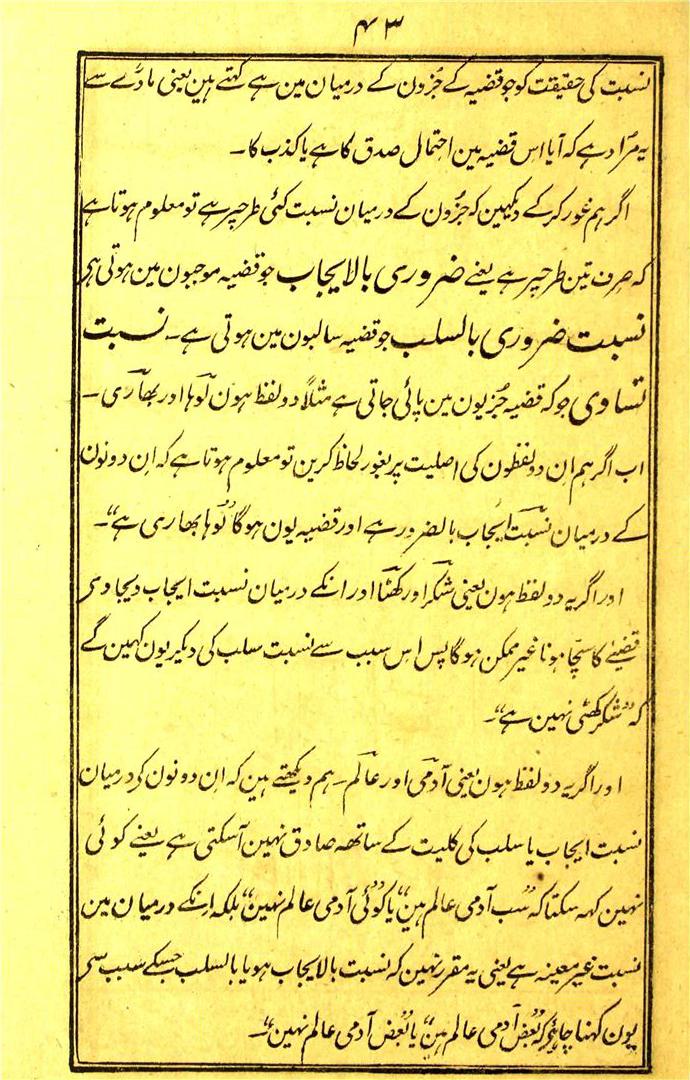 ۴۳
نسبت کی حقیقت کو جو قضیہ کے جُزون کے درمیان مین ہے کہتے ہین یعنی مادّے سے
یہ مُراد ہے کہ آیا اس قضیہ مین احتمال صدق کا ہے یا کذب کا۔
اگر ہم غور کر کے دیکھین کہ جُزون کے درمیان نسبت کئی طرحپر ہے تو معلوم ہوتا ہے
کہ صرف تین طرحپر ہے یعنے ضروری بالایجاب جو قضیہ موجبون مین ہوتی ہی
نسبت ضروری بالسلب جو قضیہ سالبون مین ہوتی ہے۔ نسبت
تساوی جو کہ قضیہ جُزیون مین پائی جاتی ہے مثلاً دو لفظ ہون لوہا اور بھاری۔
اب اگر ہم اِن دو لفظون کی اصلیت پر بغور لحاظ کرین تو معلوم ہوتا ہے کہ اِن دونون
کے درمیان نسبت ایجاب بالضرور ہے اور قضیہ یون ہوگا ’’لوہا بھاری ہے‘‘۔
اور اگر یہ دو لفظ ہون یعنی شکر اور کھٹا اور انکے درمیان نسبت ایجاب دیجاوی
قضیئے کا سچّا ہونا غیر ممکن ہوگا پس اِس سبب سے نسبت سلب کی دیکر یون کہین گے
کہ ’’شکر کھٹی نہین ہے‘‘۔
اور اگر یہ دو لفظ ہون یعنی آدمی اور عالم۔ ہم دیکھتے ہین کہ اِن دونون کی درمیان
نسبت ایجاب یا سلب کی کلیت کے ساتھہ صادق نہین آسکتی ہے یعنے کوئی
نہین کہہ سکتا کہ ’’سب آدمی عالم ہین‘‘ یا ’’کوئی آدمی عالم نہین‘‘ بلکہ اِنکے درمیان مین
نسبت غیر معینہ ہے یعنی یہ مقرر نہین کہ نسبت بالایجاب ہو یا بالسلب جسکے سبب سی
یون کہنا چاہئی کہ ’’بعض آدمی عالم ہین‘‘ یا ’’بعض آدمی عالم نہین‘‘۔